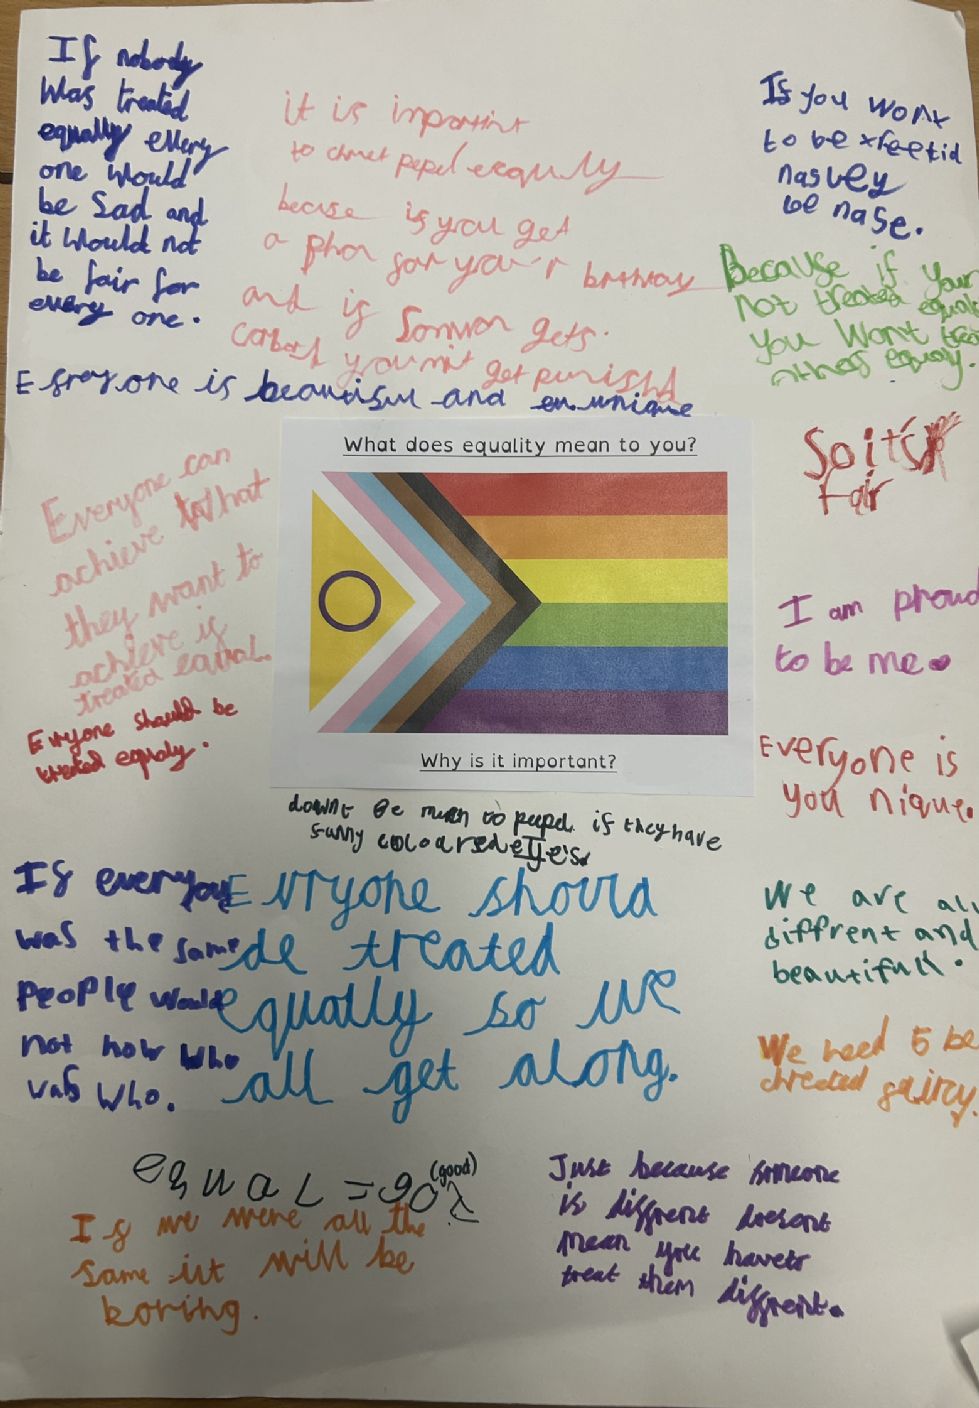 If nobody
was treated
equally every
one would
be sad and
it would not
be fair for
every one.
it is important
to pepel equily
becuse if you get
a for your brthray
and if gets.
you mit get punishd
If you wont
to be
be nase.
Because if your
not treated equal
you wont trea
others equaly.
Esreyone is beautiful and unique
What does equality mean to you?
So it's
fair
Everyone can
achieve what
they want to
achieve if
treated equal.
I am proud
to be me
Evryone should be
treated equaly.
Why is it important?
Everyone is
you nique.
downt Be mean to pepel if they have
funny coloured eye's.
If everyone
was the same
people would
not now who
was who.
Evryone should
be treated
equally so we
all get along.
We are all
diffrent and
beautifull.
We need to be
treated
equal = god
(good)
If we were all the
same it will be
boring.
Just because someone
is diffrent doesont
mean you haveto
treat them diffrent.